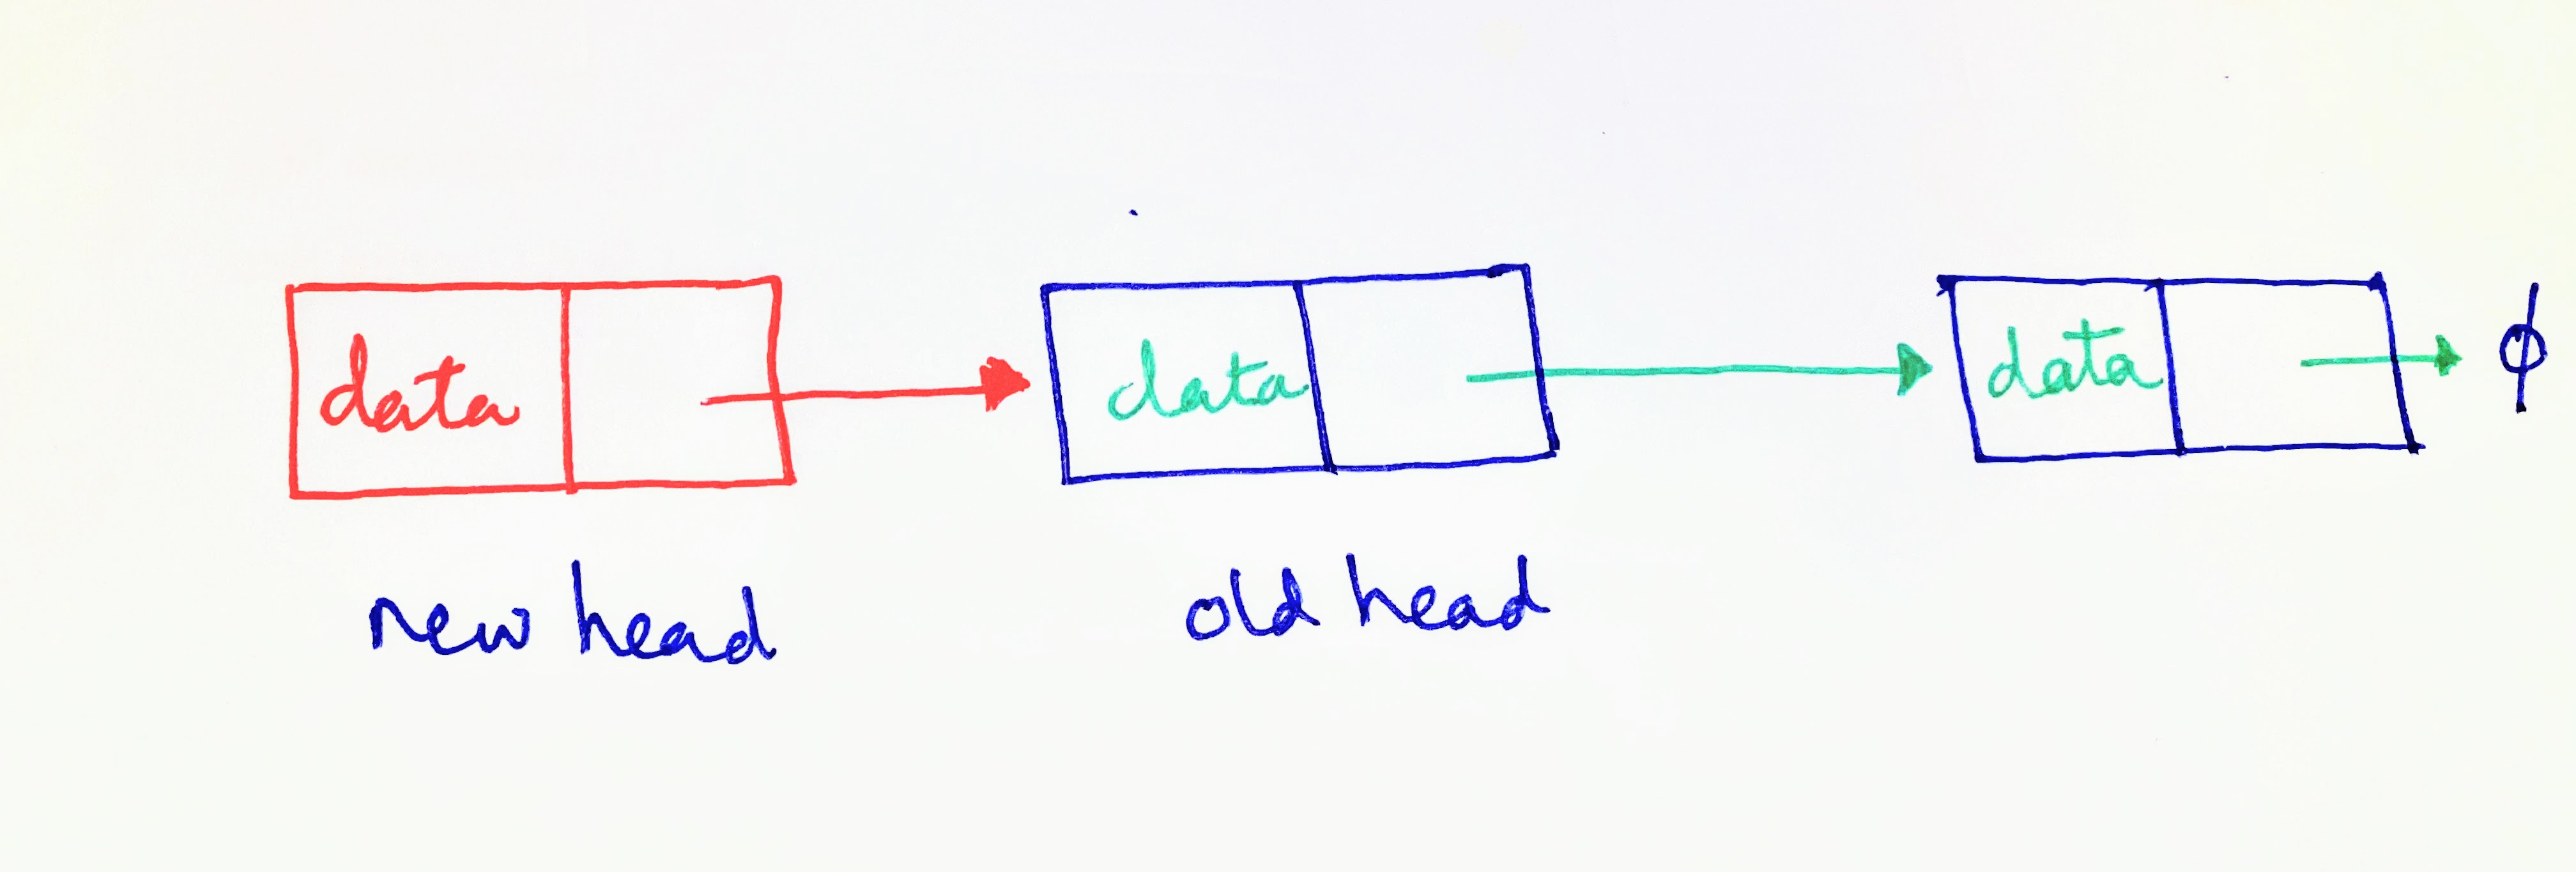 data data data ϕ
new head old head